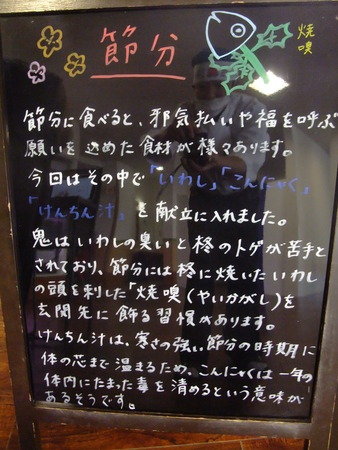 節分
焼嗅
節分に食べると、邪気払いや福を呼ぶ
願いを込めた食材が様々あります。
今回はその中で「いわし」「こんにゃく」
「けんちん汁」を献立に入れました。
鬼はいわしの臭いと柊のトゲが苦手と
されており、節分には柊に焼いたいわし
の頭を刺した「焼嗅(やいかがし)を
玄関先に飾る習慣があります。
けんちん汁は、寒さの強い節分の時期に
体の芯まで温まるため、こんにゃくは一年の
体内にたまった毒を清めるという意味が
あるそうです。